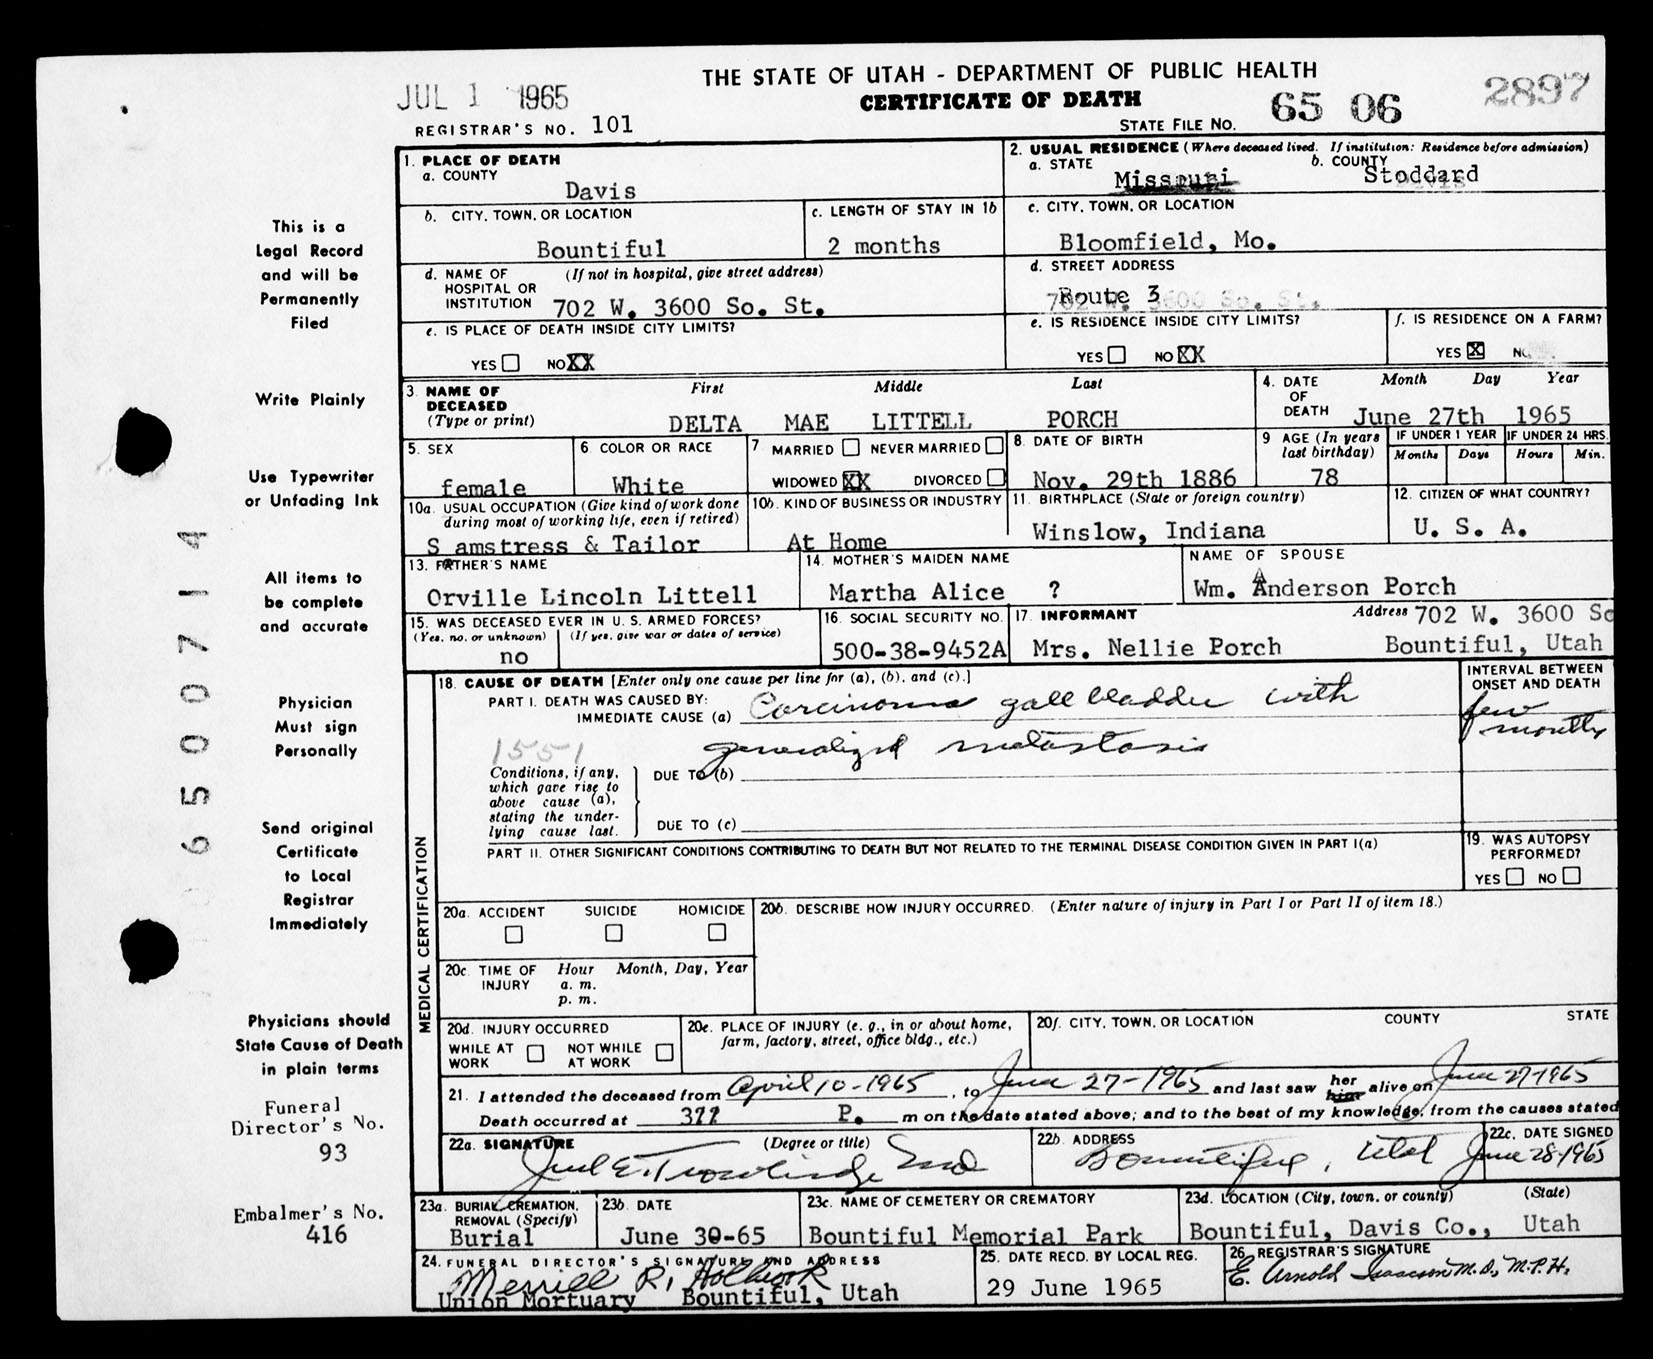 THE STATE OF UTAH - DEPARTMENT OF PUBLIC HEALTH
CERTIFICATE OF DEATH
JUL 1 1965
REGISTRAR'S NO. 101
STATE FILE NO. 65 06 2897
1. PLACE OF DEATH
a. COUNTY
Davis
2. USUAL RESIDENCE (Where deceased lived. If institution: Residence before admission)
a. STATE
Missouri
b. COUNTY
Stoddard
b. CITY, TOWN, OR LOCATION
Bountiful
c. LENGTH OF STAY IN 1b
2 months
c. CITY, TOWN, OR LOCATION
Bloomfield, Mo.
d. NAME OF HOSPITAL OR INSTITUTION
(If not in hospital, give street address)
702 W. 3600 So. St.
d. STREET ADDRESS
Route 3
e. IS PLACE OF DEATH INSIDE CITY LIMITS?
YES NO XX
e. IS RESIDENCE INSIDE CITY LIMITS?
YES NO XX
f. IS RESIDENCE ON A FARM?
YES X NO
3. NAME OF DECEASED
(Type or print)
First Middle Last
DELTA MAE LITTELL PORCH
4. DATE OF DEATH
Month Day Year
June 27th 1965
5. SEX
female
6. COLOR OR RACE
White
7. MARRIED NEVER MARRIED
WIDOWED XX DIVORCED
8. DATE OF BIRTH
Nov. 29th 1886
9 AGE (In years last birthday)
78
IF UNDER 1 YEAR
Months Days
IF UNDER 24 HRS.
Hours Min.
10a. USUAL OCCUPATION (Give kind of work done during most of working life, even if retired)
S amstress & Tailor
10b. KIND OF BUSINESS OR INDUSTRY
At Home
11. BIRTHPLACE (State or foreign country)
Winslow, Indiana
12. CITIZEN OF WHAT COUNTRY?
U. S. A.
13. FATHER'S NAME
Orville Lincoln Littell
14. MOTHER'S MAIDEN NAME
Martha Alice ?
NAME OF SPOUSE
Wm. Anderson Porch
15. WAS DECEASED EVER IN U. S. ARMED FORCES?
(Yes, no, or unknown) (If yes, give war or dates of service)
no
16. SOCIAL SECURITY NO.
500-38-9452A
17. INFORMANT
Mrs. Nellie Porch
Address 702 W. 3600 So
Bountiful, Utah
MEDICAL CERTIFICATION
18. CAUSE OF DEATH [Enter only one cause per line for (a), (b), and (c).]
PART I. DEATH WAS CAUSED BY:
IMMEDIATE CAUSE (a) Carcinoma gall bladder with
generalized metastasis
1551
INTERVAL BETWEEN ONSET AND DEATH
few months
Conditions, if any, which gave rise to above cause (a), stating the underlying cause last.
DUE TO (b)
DUE TO (c)
PART II. OTHER SIGNIFICANT CONDITIONS CONTRIBUTING TO DEATH BUT NOT RELATED TO THE TERMINAL DISEASE CONDITION GIVEN IN PART I(a)
19. WAS AUTOPSY PERFORMED?
YES NO
20a. ACCIDENT SUICIDE HOMICIDE
20b. DESCRIBE HOW INJURY OCCURRED. (Enter nature of injury in Part I or Part II of item 18.)
20c. TIME OF INJURY
Hour Month, Day, Year
a. m.
p. m.
20d. INJURY OCCURRED
WHILE AT WORK NOT WHILE AT WORK
20e. PLACE OF INJURY (e. g., in or about home, farm, factory, street, office bldg., etc.)
20f. CITY, TOWN, OR LOCATION COUNTY STATE
21. I attended the deceased from April 10-1965, to June 27-1965 and last saw her him alive on June 27 1965
Death occurred at P. m on the date stated above; and to the best of my knowledge, from the causes stated
22a. SIGNATURE (Degree or title)
22b. ADDRESS
Bountiful, Utah
22c. DATE SIGNED
June 28-1965
23a. BURIAL, CREMATION, REMOVAL (Specify)
Burial
23b. DATE
June 30-65
23c. NAME OF CEMETERY OR CREMATORY
Bountiful Memorial Park
23d. LOCATION (City, town, or county) (State)
Bountiful, Davis Co., Utah
24. FUNERAL DIRECTOR'S SIGNATURE AND ADDRESS
Merrill R. Holbrook
Union Mortuary Bountiful, Utah
25. DATE RECD. BY LOCAL REG.
29 June 1965
26. REGISTRAR'S SIGNATURE
E. Arnold Isaacson M.D., M.P.H.
This is a
Legal Record
and will be
Permanently
Filed
Write Plainly
Use Typewriter
or Unfading Ink
All items to
be complete
and accurate
Physician
Must sign
Personally
Send original
Certificate
to Local
Registrar
Immediately
Physicians should
State Cause of Death
in plain terms
Funeral
Director's No.
93
Embalmer's No.
416
6500714